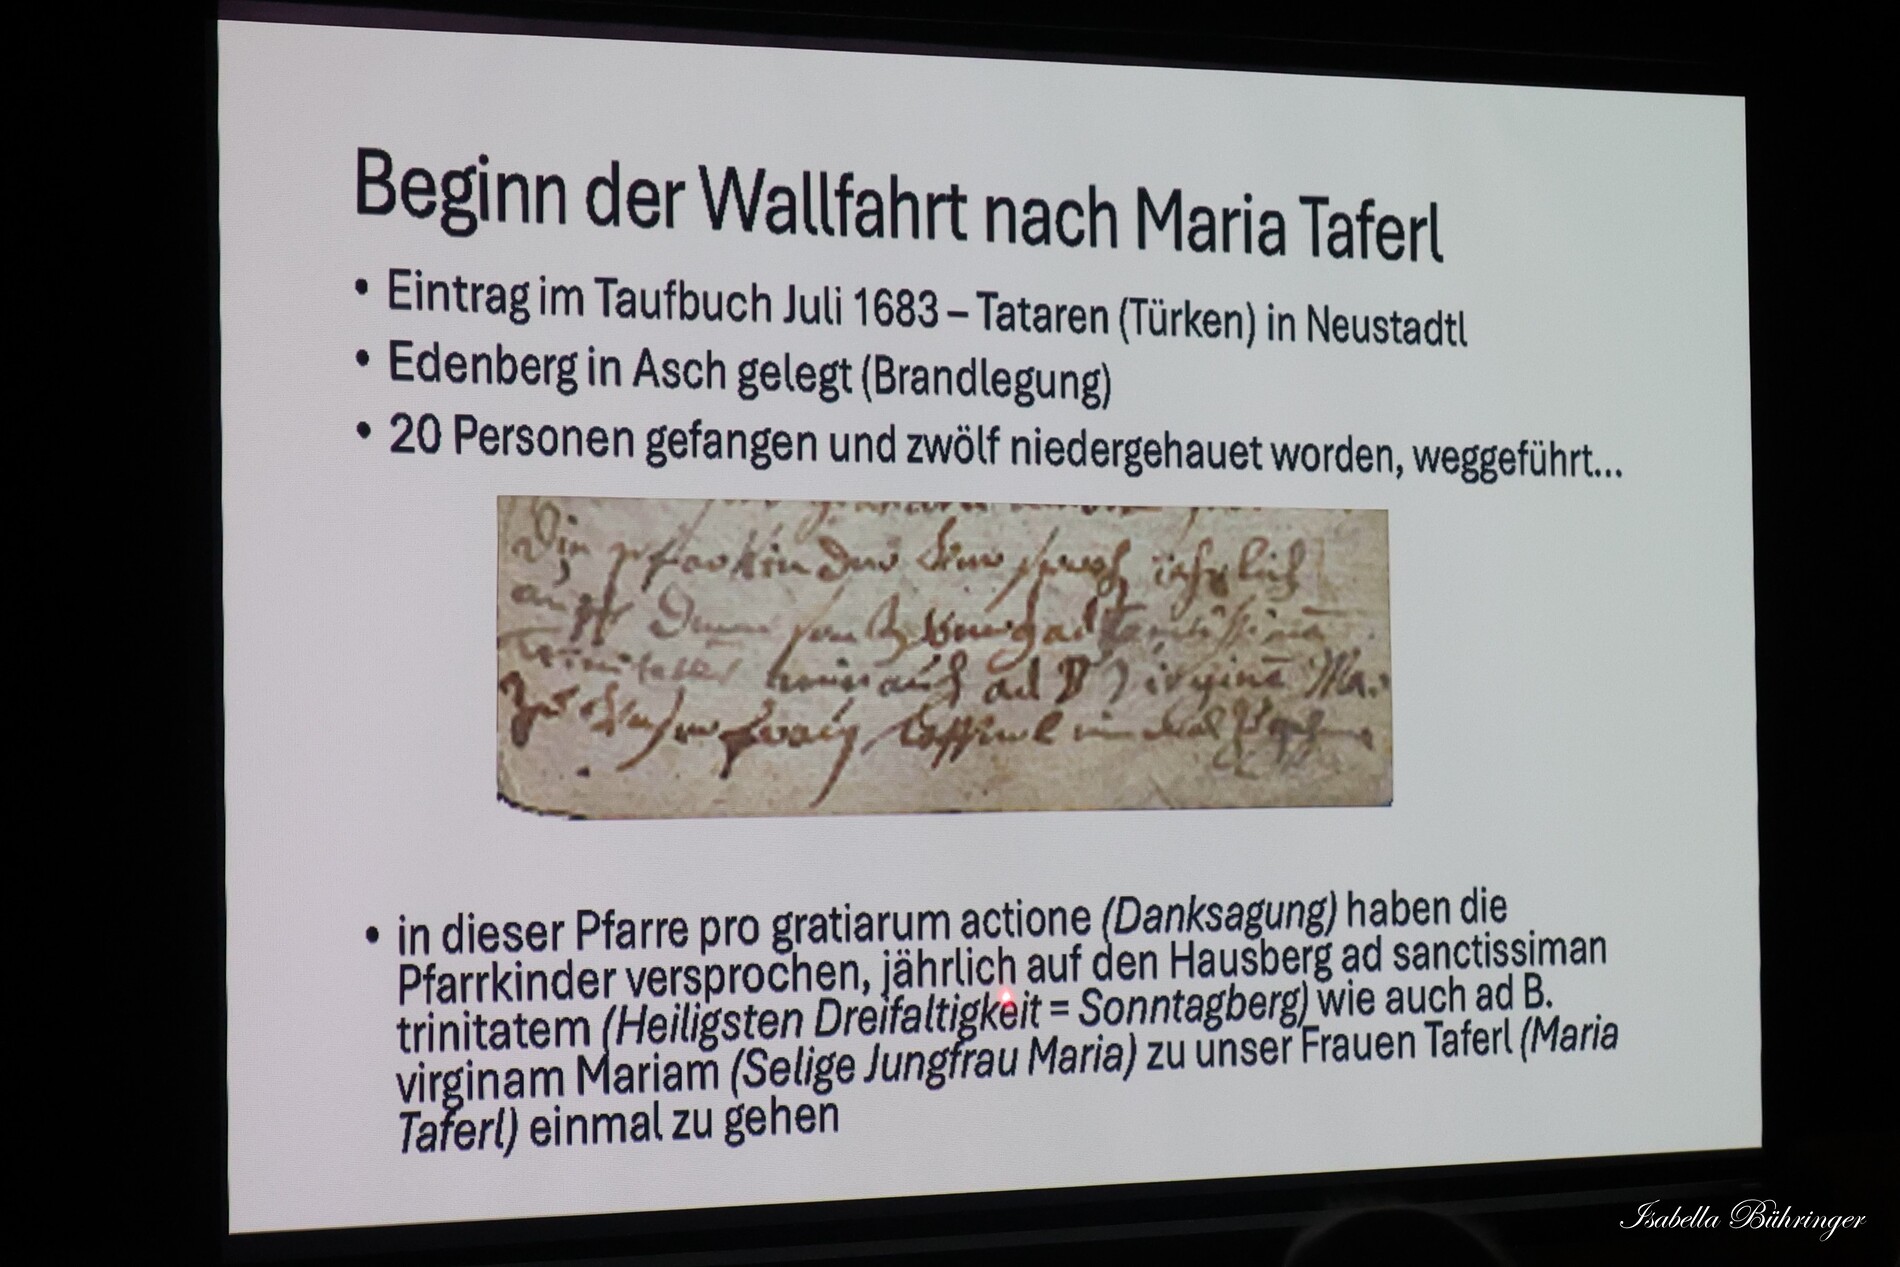 Beginn der Wallfahrt nach Maria Taferl
• Eintrag im Taufbuch Juli 1683 – Tataren (Türken) in Neustadtl
• Edenberg in Asch gelegt (Brandlegung)
• 20 Personen gefangen und zwölf niedergehauet worden, weggeführt...
jährlich
auff
ad
auch ad B Virginē Ma.
• in dieser Pfarre pro gratiarum actione (Danksagung) haben die
Pfarrkinder versprochen, jährlich auf den Hausberg ad sanctissiman
trinitatem (Heiligsten Dreifaltigkeit = Sonntagberg) wie auch ad B.
virginam Mariam (Selige Jungfrau Maria) zu unser Frauen Taferl (Maria
Taferl) einmal zu gehen
Isabella Bühringer